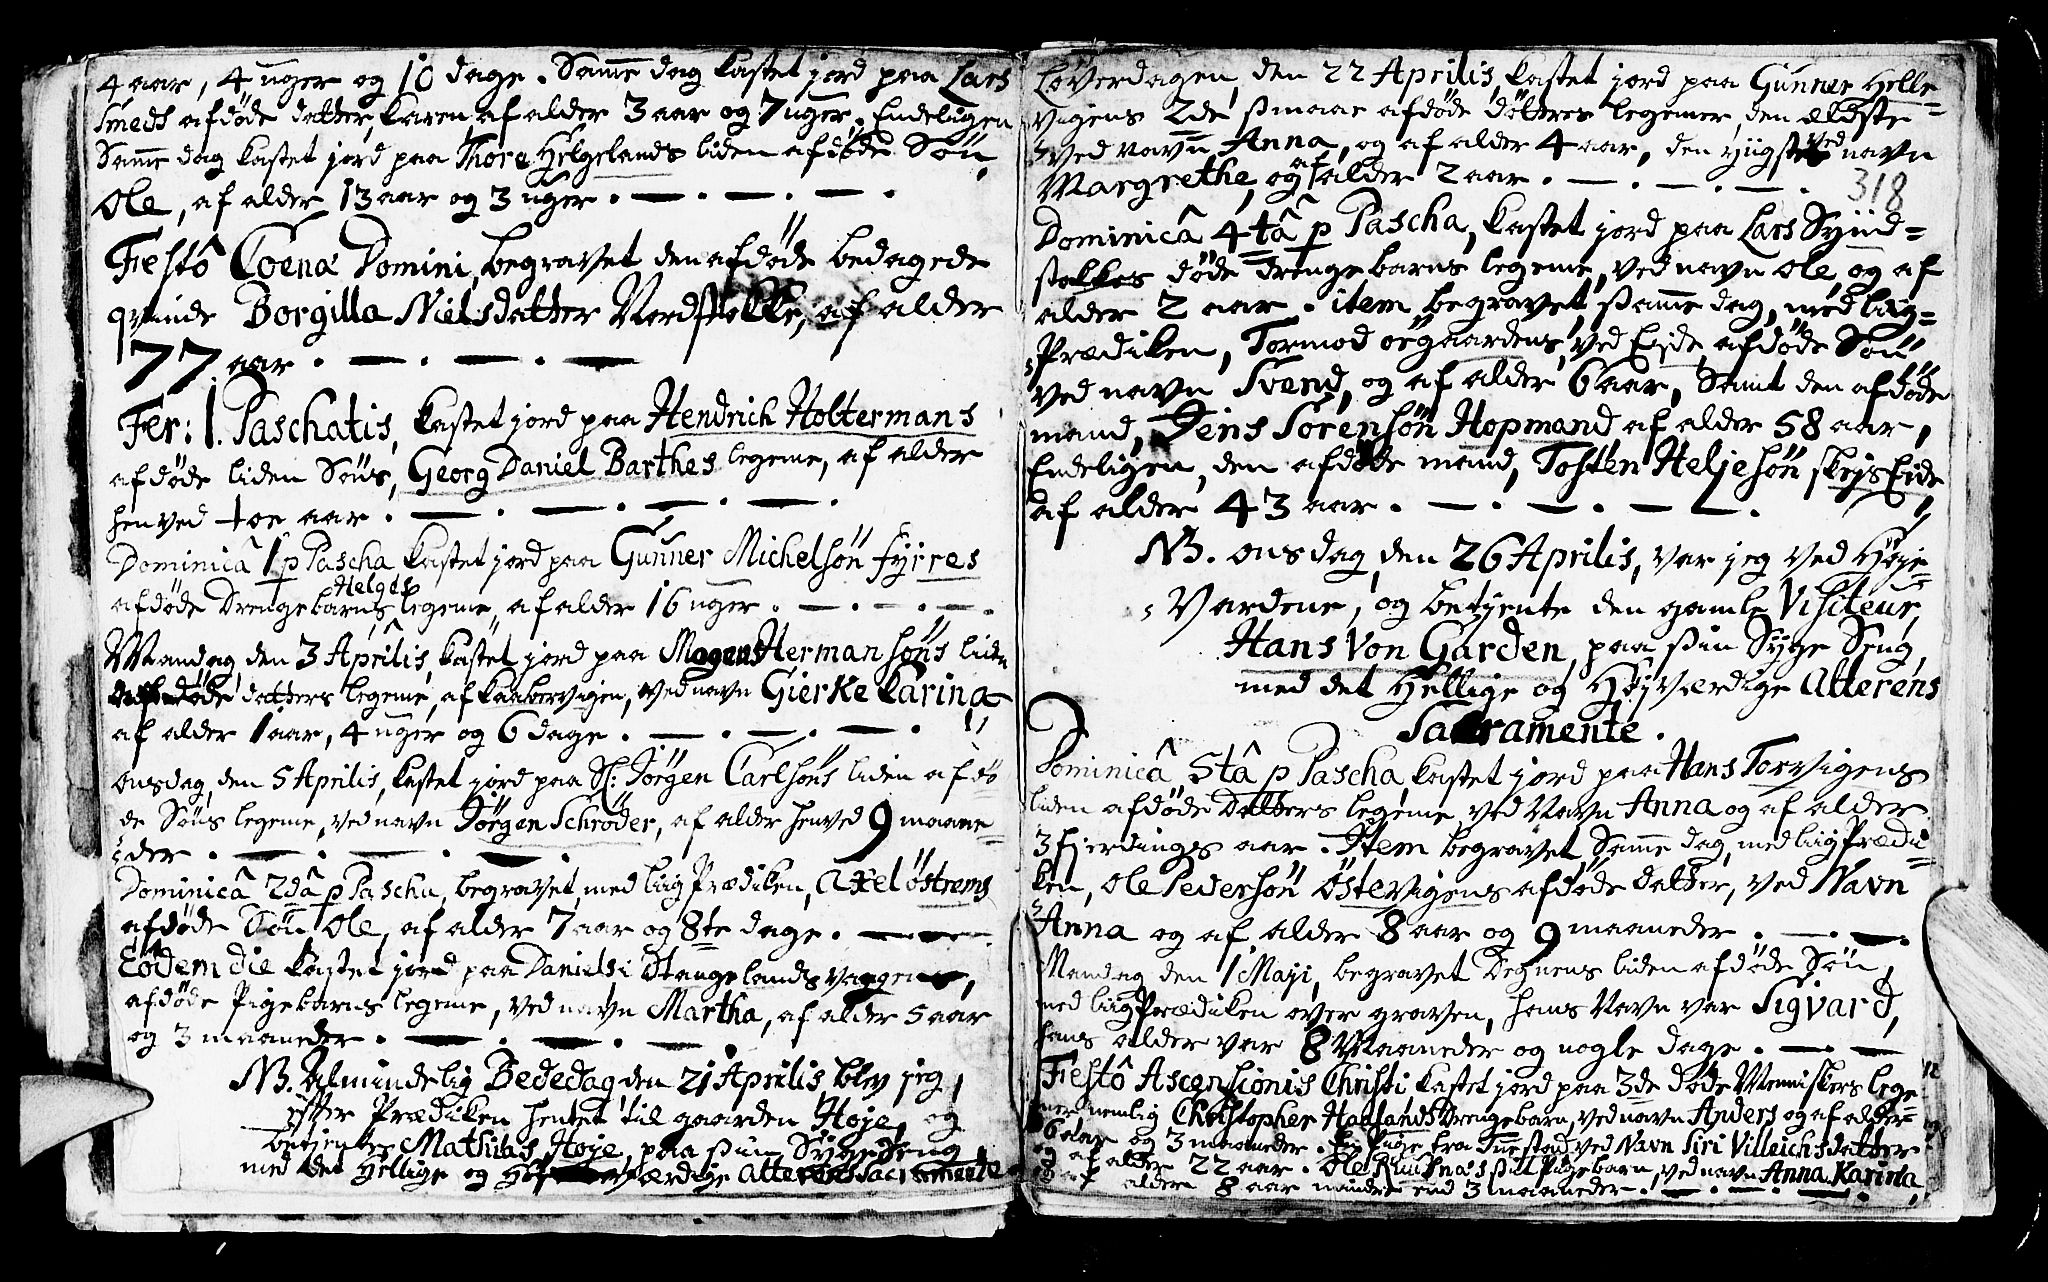 4 aar, 4 uger og 10 dage. Samme dag kastet jord paa Lars
Smeds afdöde datter, Karen, af alder 3 aar og 7 uger. Endeligen
Samme dag kastet jord paa Thore Helgelands liden afdöde Sön,
Ole, af alder 13 aar og 3 uger. — . — . — .
Festô Coenæ Domini, begravet den afdöde bedagede
qvinde Borgilla Nielsdatter Nordstokke, af alder
77 aar. — . — . —
Fer: 1. Paschatis, kastet jord paa Hendrich Holtermans
afdöde liden Söns, Georg Daniel Barthes legeme, af alder
henved toe aar. — . — . — . — .
Dominicâ 1 p Pascha kastet jord paa Gunner Michelsön fyrres
Helges
afdöde Drengebarns legeme, af alder 16 uger. — . — . — .
Mandag, den 3 Aprilis, kastet jord paa Mogens Hermansöns liden
afdöde datters legeme, af Kaabervigen, ved navn Gierke Karina
af alder 1 aar, 4 uger og 6 dage. — . — . — .
Onsdag, den 5 Aprilis, kastet jord paa Sl: Jörgen Carlsöns liden afdö
de Söns legeme, ved navn Jörgen Schröder, af alder henved 9 maane=
=der. — . — . — .
Dominicâ 2dâ p Pascha, begravet, med liig Prædiken, Axel östrems
afdöde Sön Ole, af alder 7 aar og 8te dage. — —
Eôdem die kastet jord paa Daniels i Stangelandsvaagen,
afdöde Pigebarns legeme, ved navn Martha, af alder 5 aar
og 3 maaneder. — . — . — .
NB. Almindelig Bededag, den 21 Aprilis, blev jeg,
efter Prædiken hentet til gaarden Höje, og
betjente Mathias Höje, paa siin Syge Seng,
med det Hellige og Höjværdige Alterens Sacramente
Löverdagen, den 22 Aprilis, kastet jord paa Gunner Helle=
vigens 2de smaae afdöde dötres legemer, den ældste
ved navn Anna, og af alder 4 aar, den yngste ved navn
Margrethe, og af alder 2 aar. — . — . — .
318
Dominicâ 4tâ p Pascha, kastet jord paa Lars Synd=
stokkes döde drengebarns legeme, ved navn Ole, og af
alder 2 aar. item, begravet samme dag, med liig=
=Prædiken, Tormod öegaardens, ved Eyde, afdöde Sön
ved navn Svend, og af alder 6 aar, Samt den afdöde
mand, Jens Sörensön Hopmand af alder 58 aar,
Endeligen, den afdöde mand, Tosten Heljesön skejsEide,
af alder 43 aar. — . — . — .
NB. Onsdag, den 26 Aprilis, var jeg ved Höje=
=Vardene, og betjente den gamle Visiteur,
Hans Von Garden, paa siin Syge Seng,
med det Hellige og Höjværdige Alterens
Sacramente.
Dominicâ 5tâ p Pascha, kastet jord paa Hans Torvigens
liden afdöde Datters legeme, ved Navn Anna og af alder
3 fierdings aar. Item begravet, Samme dag, med liigPrædi=
ken, Ole Pedersön Östevigens afdöde datter, ved Navn
Anna og af alder 8 aar og 9 maaneder. — . — .
Mandag den 1 Maji, begravet Degnens liden afdöde Sön,
med liigPrædiken over graven, hans Navn var Sigvard,
hans alder var 8 Maaneder og nogle dage. — . —
Festô Ascensionis Christi, kastet jord paa 3de döde Menniskers lege=
mer, nemlig Christopher Haalands Drengebarn, ved navn Anders og af alder
6 aar og 3 maaneder. En Pige fra ved Navn Siri Villeichsdatter
og af alder 22 aar. Ole sit Pigebarn, ved navn Anna Karina,
og af alder 8 aar mindre end 3 maaneder. — . — . — .